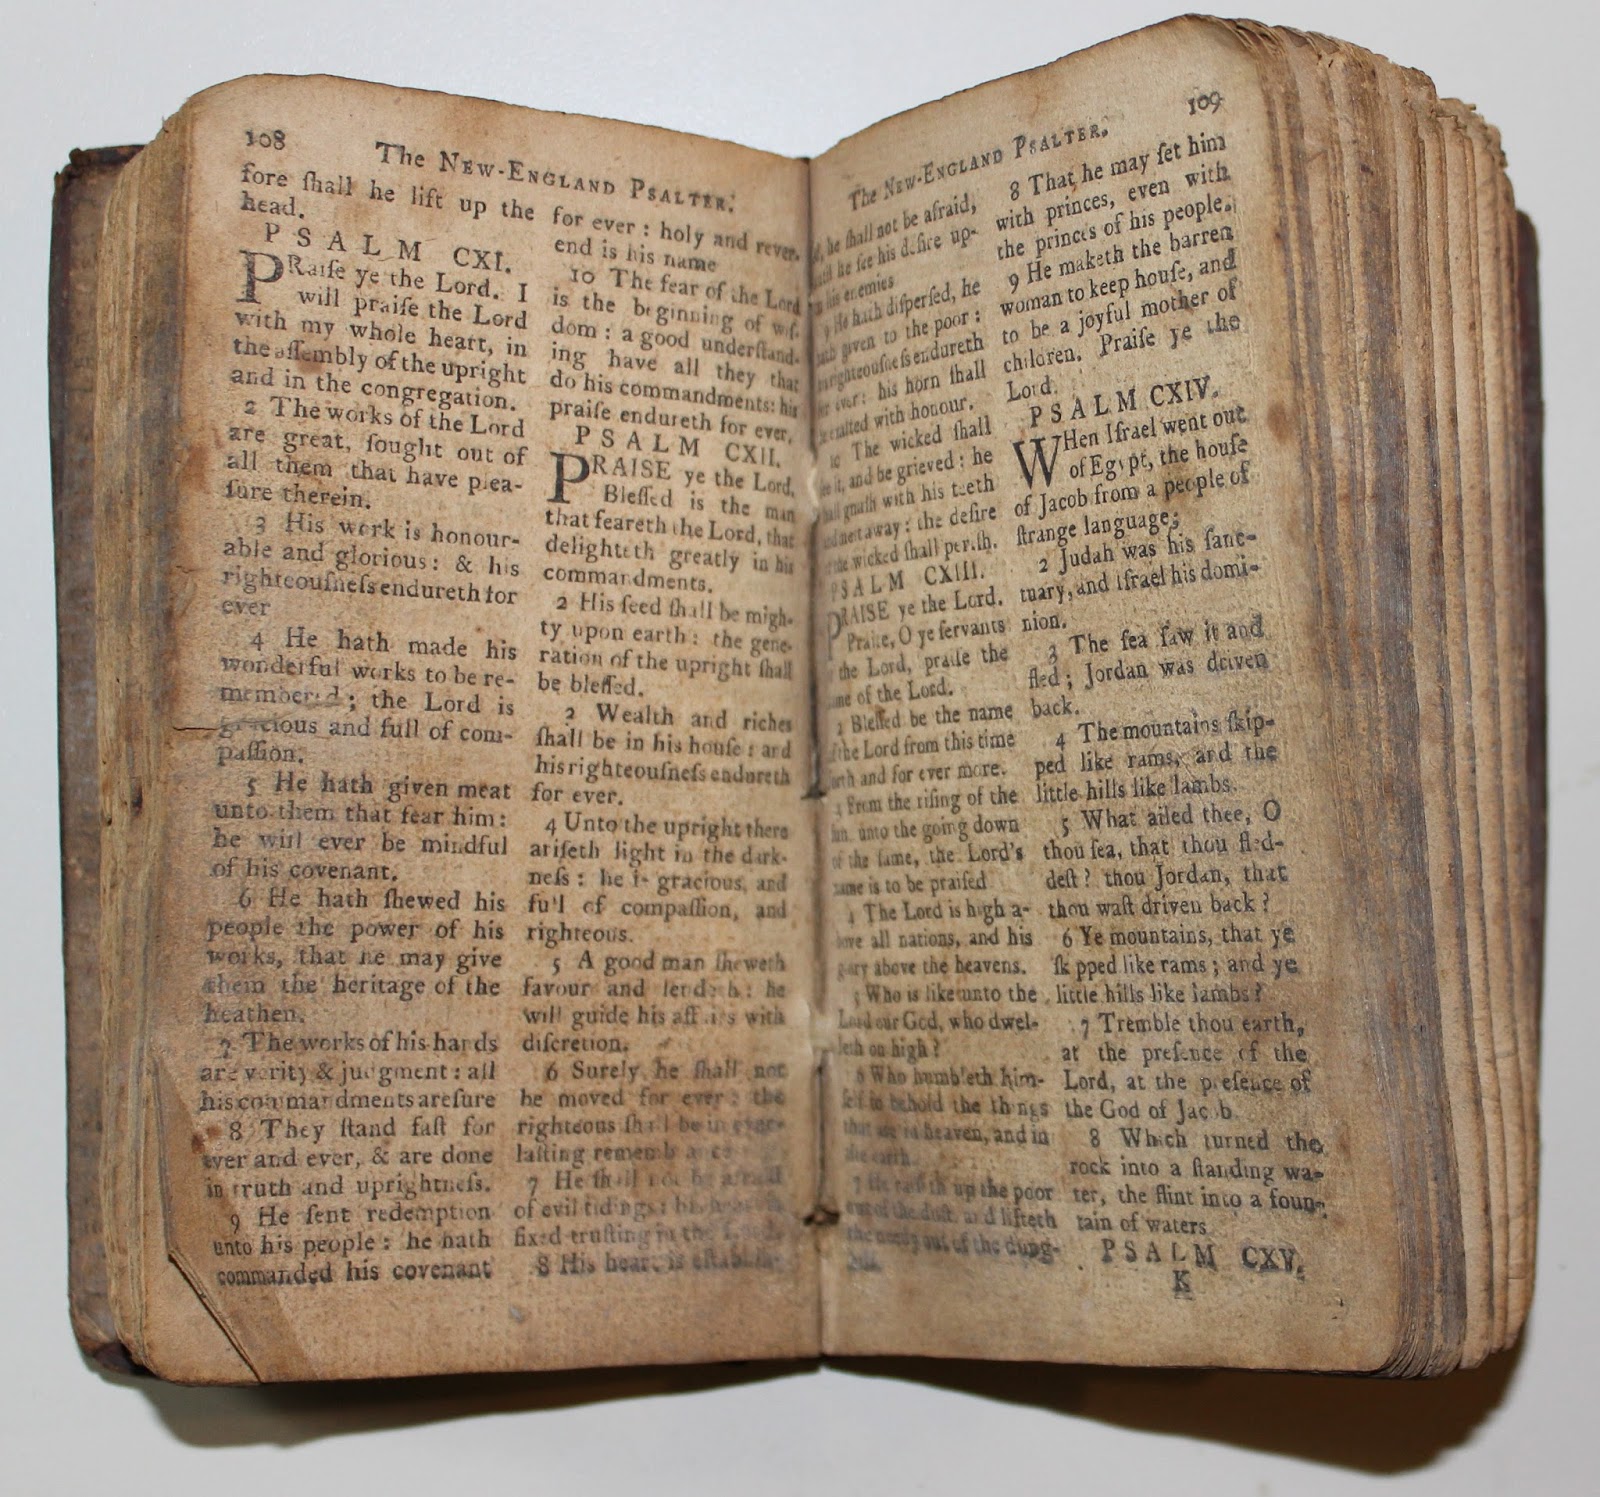 108
The NEW-ENGLAND PSALTER.
fore ſhall he lift up the
head.
PSALM CXI.
PRaiſe ye the Lord. I
will praiſe the Lord
with my whole heart, in
the aſſembly of the upright
and in the congregation.
2 The works of the Lord
are great, ſought out of
all them that have plea-
ſure therein.
3 His work is honour-
able and glorious: & his
righteouſneſs endureth for
ever
4 He hath made his
wonderful works to be re-
membered; the Lord is
gracious and full of com-
paſſion.
5 He hath given meat
unto them that fear him:
he will ever be mindful
of his covenant.
6 He hath ſhewed his
people the power of his
works, that he may give
them the heritage of the
heathen.
7 The works of his hands
are verity & judgment: all
his commandments are ſure
8 They ſtand faſt for
ever and ever, & are done
in truth and uprightneſs.
9 He ſent redemption
unto his people: he hath
commanded his covenant
for ever: holy and rever-
end is his name
10 The fear of the Lord
is the beginning of wiſ-
dom: a good underſtand-
ing have all they that
do his commandments: his
praiſe endureth for ever.
PSALM CXII.
PRAISE ye the Lord.
Bleſſed is the man
that feareth the Lord, that
delighteth greatly in his
commandments.
2 His ſeed ſhall be migh-
ty upon earth: the gene-
ration of the upright ſhall
be bleſſed.
3 Wealth and riches
ſhall be in his houſe: and
his righteouſneſs endureth
for ever.
4 Unto the upright there
ariſeth light in the dark-
neſs: he is gracious, and
full of compaſſion, and
righteous.
5 A good man ſheweth
favour and lendeth: he
will guide his affairs with
diſcretion.
6 Surely he ſhall not
be moved for ever: the
righteous ſhall be in ever-
laſting remembrance
7 He ſhall not be afraid
of evil tidings: his heart is
fixed truſting in the Lord.
8 His heart is eſtabliſh-
109
The NEW-ENGLAND PSALTER.
he ſhall not be afraid,
until he ſee his deſire up-
on his enemies
9 He hath diſperſed, he
hath given to the poor:
his righteouſneſs endureth
for ever: his horn ſhall
be exalted with honour.
10 The wicked ſhall
ſee it, and be grieved: he
ſhall gnaſh with his teeth
and melt away: the deſire
of the wicked ſhall periſh.
PSALM CXIII.
PRAISE ye the Lord.
Praiſe, O ye ſervants
the Lord, praiſe the
name of the Lord.
2 Bleſſed be the name
of the Lord from this time
forth and for ever more.
3 From the riſing of the
ſun unto the going down
of the ſame, the Lord's
name is to be praiſed
4 The Lord is high a-
bove all nations, and his
glory above the heavens.
5 Who is like unto the
Lord our God, who dwel-
leth on high?
6 Who humbleth him-
ſelf to behold the things
that are in heaven, and in
the earth.
7 He raiſeth up the poor
out of the duſt, and lifteth
the needy out of the dung-
hill.
8 That he may ſet him
with princes, even with
the princes of his people.
9 He maketh the barren
woman to keep houſe, and
to be a joyful mother of
children. Praiſe ye the
Lord.
PSALM CXIV.
WHen Iſrael went out
of Egypt, the houſe
of Jacob from a people of
ſtrange language;
2 Judah was his ſanc-
tuary, and Iſrael his domi-
nion.
3 The ſea ſaw it and
fled; Jordan was driven
back.
4 The mountains ſkip-
ped like rams, and the
little hills like lambs.
5 What ailed thee, O
thou ſea, that thou fled-
deſt? thou Jordan, that
thou waſt driven back?
6 Ye mountains, that ye
ſkipped like rams; and ye
little hills like lambs?
7 Tremble thou earth,
at the preſence of the
Lord, at the preſence of
the God of Jacob.
8 Which turned the
rock into a ſtanding wa-
ter, the flint into a foun-
tain of waters
PSALM CXV.
K